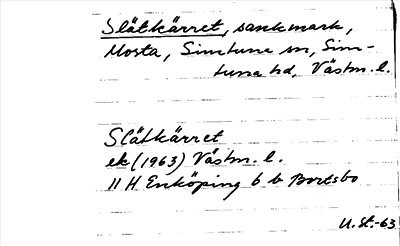 Slätkärret, sankmark,
Mosta, Simtuna sn, Sim-
tuna hd, Västm. l.
Slätkärret
ek (1963) Västm. l.
11 H Enköping 6 b Bortsbo
U.St.-63